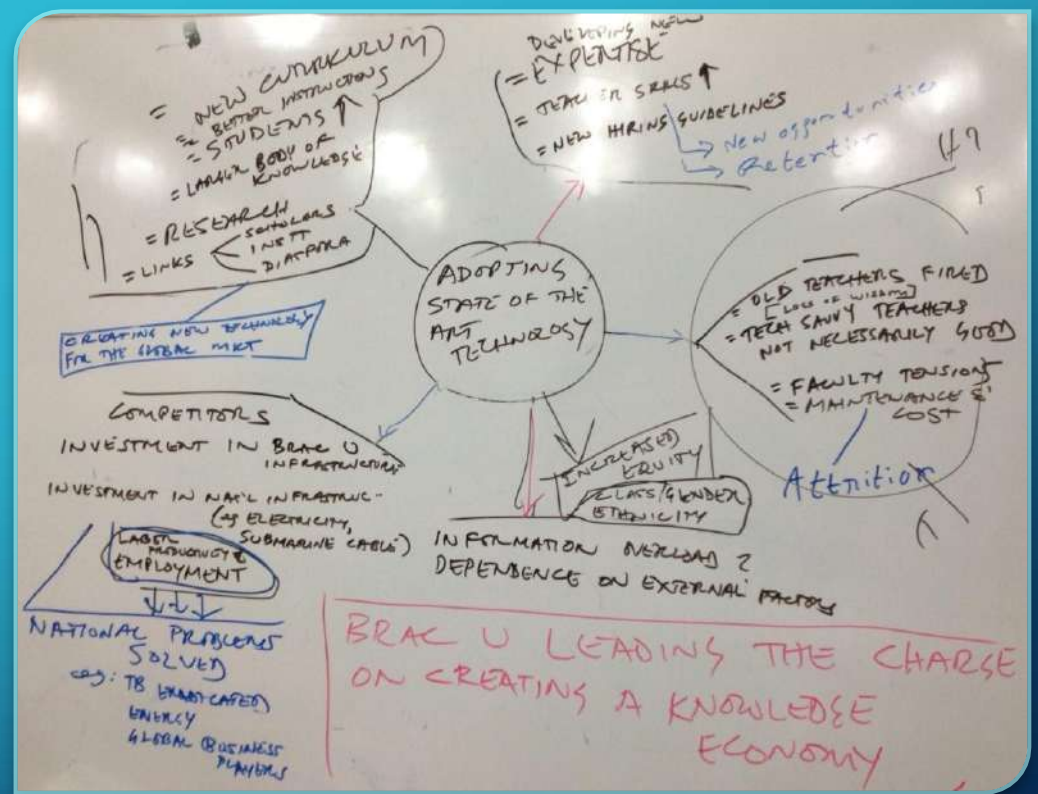 = NEW CURRICULUM
= BETTER INSTRUCTIONS
= STUDENTS ↑
= LARGER BODY OF
KNOWLEDGE
= RESEARCH
= LINKS
SCHOLARS
INSTT
DIASPORA
CREATING NEW TECHNOLOGY
FOR THE GLOBAL MKT
DEVELOPING NEW
= EXPERTISE
= TEACHER SKILLS ↑
= NEW HIRING GUIDELINES
→ New opportunities
→ Retention
ADOPTING
STATE OF THE
ART
TECHNOLOGY
= OLD TEACHERS FIRED
[LOSS OF WISDOM]
= TECH SAVVY TEACHERS
NOT NECESSARILY GOOD
= FACULTY TENSION
= MAINTENANCE &
COST
Attrition
COMPETITORS
INVESTMENT IN BRAC U
INFRASTRUCTURE
INVESTMENT IN NAT'L INFRASTRUC-
(eg ELECTRICITY,
SUBMARINE CABLE)
LABOR
PRODUCTIVITY &
EMPLOYMENT
NATIONAL PROBLEMS
SOLVED
eg: TB ERADICATED
ENERGY
GLOBAL BUSINESS
PLAYERS
INCREASED
EQUITY
CLASS/GENDER
ETHNICITY
INFORMATION OVERLOAD ?
DEPENDENCE ON EXTERNAL FACTORS
BRAC U LEADING THE CHARGE
ON CREATING A KNOWLEDGE
ECONOMY